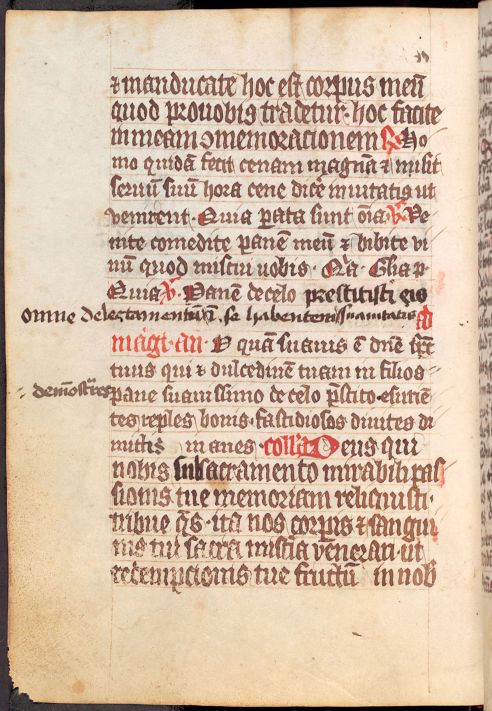 ⁊ manducate hoc est corpus meū
quod pro uobis tradetur· hoc facite
in meam ɔmemoracionem R̸ Ho
mo quidā fecit cenam magnā ⁊ misit
seruū suū hora cene dicē inuitatis ut
venirent· Quia parata sunt oīa· V̸ Ve
nite comedite panē meū ⁊ bibite vi
nū quod miscui uobis· Gła
Quia V̸ Panē de celo prestitisti eis
omne delectamentum ī se habentem suauitatis ad
māgī· an· O quam suauis ē dn̄e spc̄
tuus qui ⁊ dulcedinē tuam in filios
demōstres pane suauissimo de celo p̄stito· esuriē
tes reples bonis· fastidiosos diuites di
mittis inanes· coll̄a Deus qui
nobis sub sacramento mirabili pas
sionis tue memoriam reliquisti·
tribue q̄s· ita nos corporis ⁊ sangui
nis tui sacra misteria venerari· ut
redempcionis tue fructū in nob̄